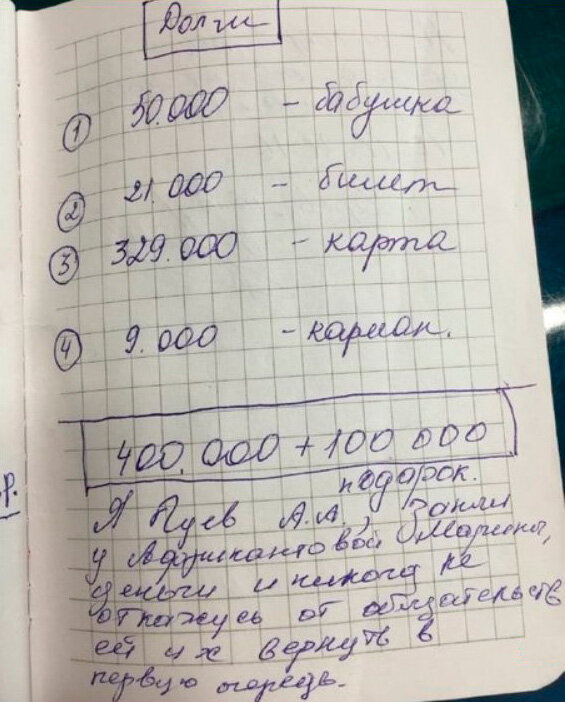 Долги
① 50.000 - бабушка
② 21.000 - билет
③ 329.000 - карта
④ 9.000 - карман.
400.000 + 100 000
подарок.
Я Гуев А.А., занял
у Марины,
деньги и никогда не
откажусь от обязательств
ей их вернуть в
первую очередь.
р.